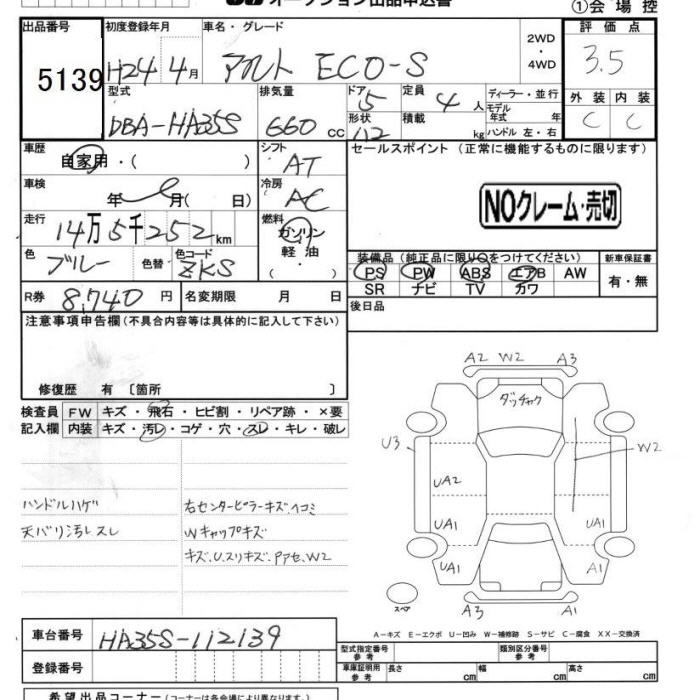 オークション出品申込書
①会場控
出品番号 初度登録年月 車名・グレード 評価点
5139 H24 4月 アルト ECO-S 2WD・4WD 3.5
型式 排気量 ドア 定員 ディーラー・並行 外装 内装
DBA-HA35S 660cc 5 4人 モデル年式 年 C C
形状 積載 kg ハンドル 左・右
車歴 シフト セールスポイント (正常に機能するものに限ります)
自家用・( ) AT
車検 冷房 NOクレーム・売切
年 月( 日) AC
走行 燃料
14万5千252km ガソリン
軽油
( ・ )
色 色替 色コード 装備品(純正品に限り○をつけてください) 新車保証書
ブルー ZKS PS PW ABS エアB AW 有・無
SR ナビ TV カワ
R券 8,740円 名変期限 月 日 後日品
注意事項申告欄(不具合内容等は具体的に記入して下さい)
修復歴 有〔箇所 〕
検査員 FW キズ・飛石・ヒビ割・リペア跡・×要
記入欄 内装 キズ・汚レ・コゲ・穴・スレ・キレ・破レ
ハンドルハゲ 右センターピラーキズヘコミ
天バリ汚レスレ Wキャップキズ
キズ、U、スリキズ、Pアセ、W2
A2 W2 A3
ダッチャク
U3 W2
UA2
UA1 UA1
UA1 A1
スペア
A3 A1
A-キズ E-エクボ U-凹み W-補修跡 S-サビ C-腐食 XX-交換済
車台番号 HA35S-112139
型式指定番号 参考 類別区分番号 参考
登録番号 車庫証明用 参考 長さ cm 幅 cm 高さ cm
希望出品コーナー(コーナーは各会場により異なります)